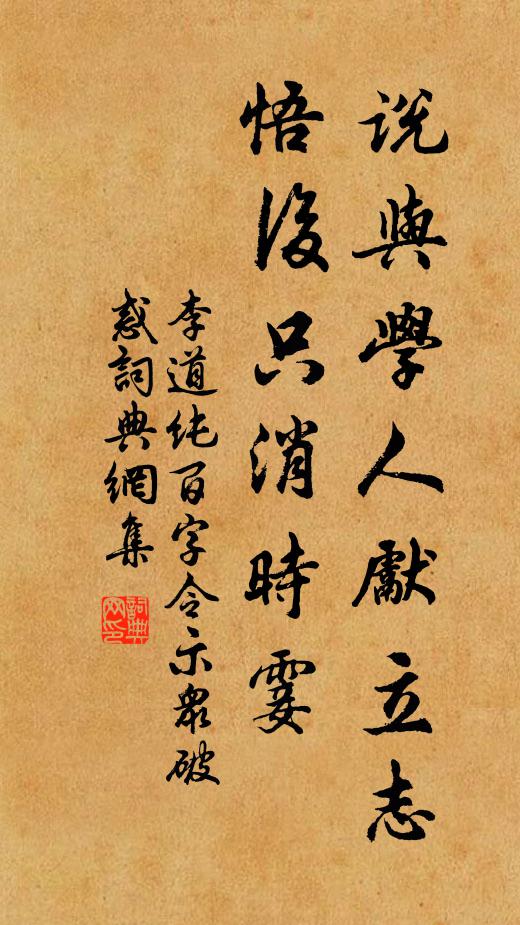 說與學人獻立志
悟後只消時霎
李道純百字令示衆破
惑詞典網集
詞典
网印